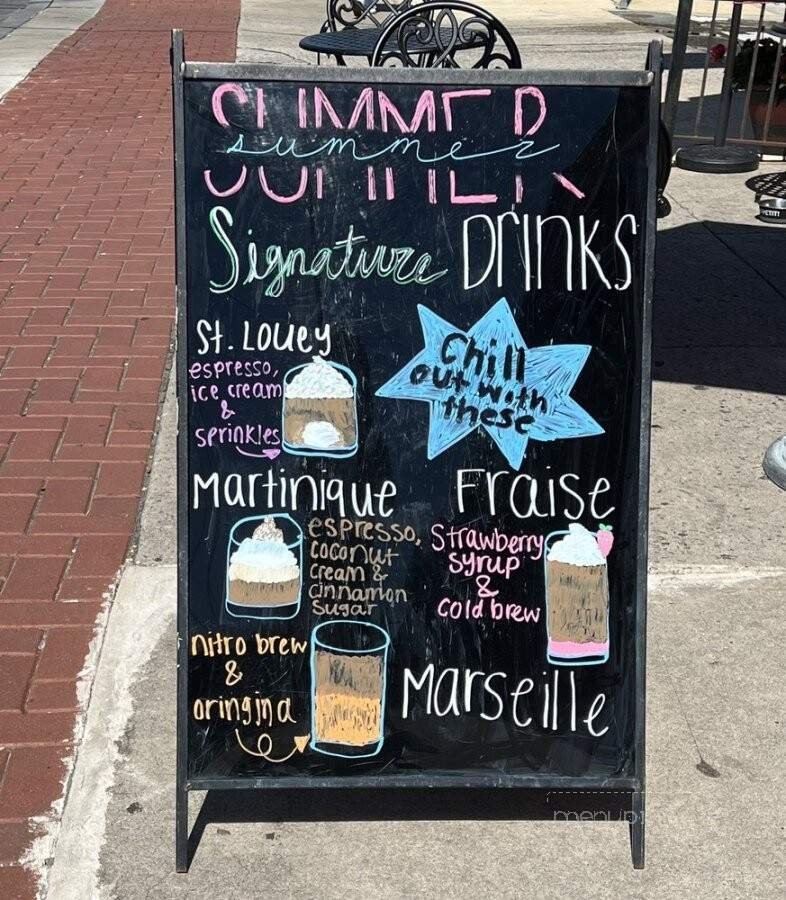 SUMMER
summer
Signature DRINKS
St. Louey
espresso,
ice cream
&
sprinkles
Chill
out with
these
Martinique
espresso,
coconut
cream &
cinnamon
sugar
Fraise
Strawberry
syrup
&
cold brew
nitro brew
&
oringina
Marseille
menupix